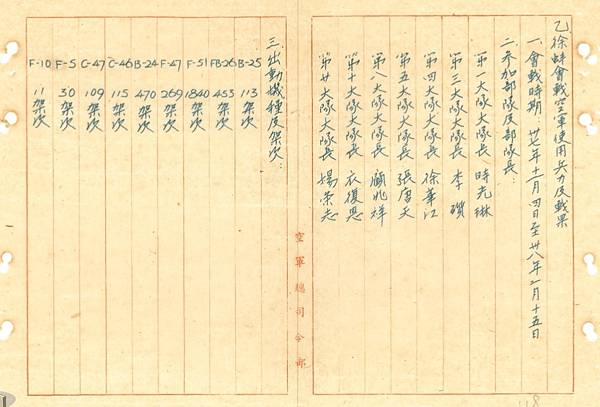 乙、徐蚌會戰空軍使用兵力及戰果
一、會戰時期：卅七年十一月四日至卅八年一月十五日
二、參加部隊及部隊長：
第一大隊大隊長 時光琳
第三大隊大隊長 李
第四大隊大隊長 徐華江
第五大隊大隊長 張唐天
第八大隊大隊長 顧兆祥
第十大隊大隊長 衣復恩
第廿大隊大隊長 楊榮志
空軍總司令部
三、出動機種及架次：
B-25 113架次
FB-26 453架次
F-51 1840架次
F-47 269架次
B-24 470架次
C-46 115架次
C-47 109架次
F-5 30架次
F-10 11架次